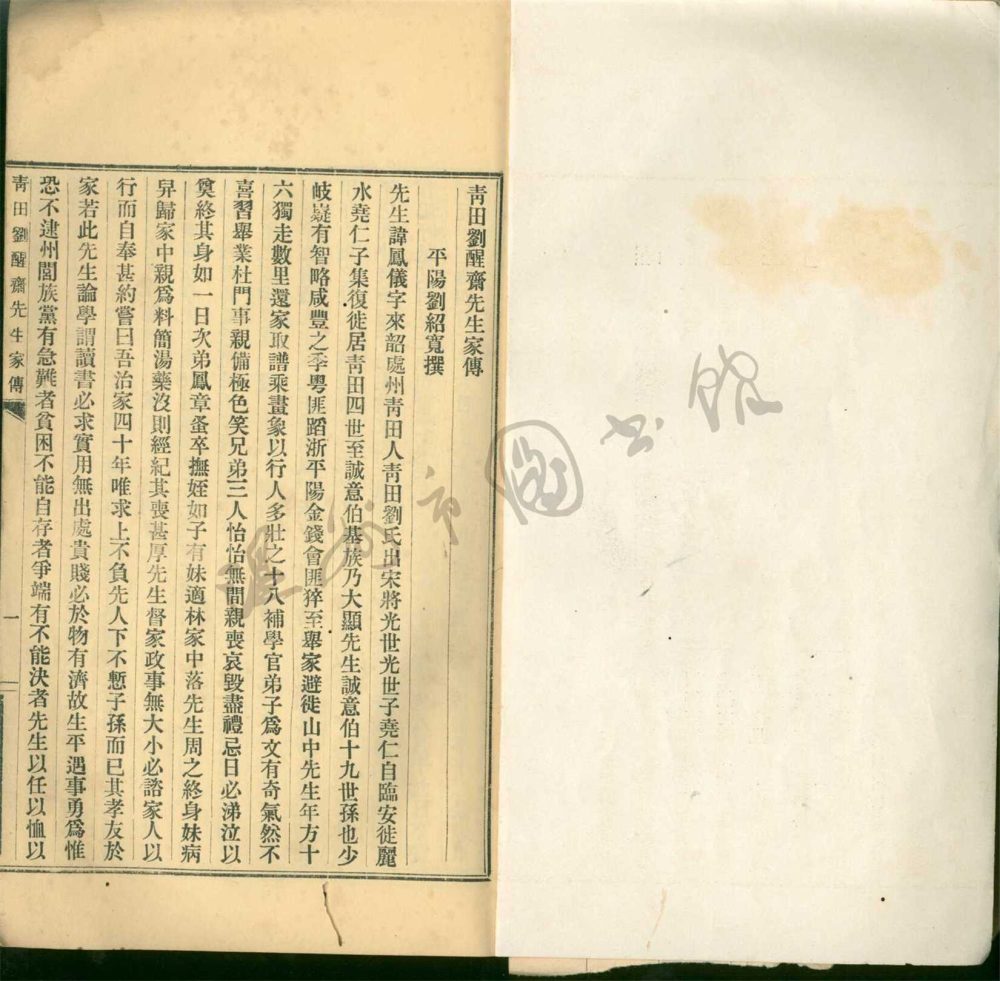 青田劉醒齋先生家傳
平陽劉紹寬撰
先生諱鳳儀字來韶處州青田人青田劉氏出宋將光世光世子堯仁自臨安徙麗
水堯仁子集復徙居青田四世至誠意伯基族乃大顯先生誠意伯十九世孫也少
岐嶷有智略咸豐之季粤匪蹈浙平陽金錢會匪猝至舉家避徙山中先生年方十
六獨走數里還家取譜乘畫象以行人多壯之十八補學官弟子爲文有奇氣然不
喜習舉業杜門事親備極色笑兄弟三人怡怡無間親喪哀毀盡禮忌日必涕泣以
奠終其身如一日次弟鳳章蚤卒撫姪如子有妹適林家中落先生周之終身妹病
舁歸家中親爲料簡湯藥沒則經紀其喪甚厚先生督家政事無大小必諮家人以
行而自奉甚約嘗曰吾治家四十年唯求上不負先人下不慙子孫而已其孝友於
家若此先生論學謂讀書必求實用無出處貴賤必於物有濟故生平遇事勇爲惟
恐不逮州閭族黨有急難者貧困不能自存者爭端有不能決者先生以任以恤以
青田劉醒齋先生家傳
一
溫州市圖書館